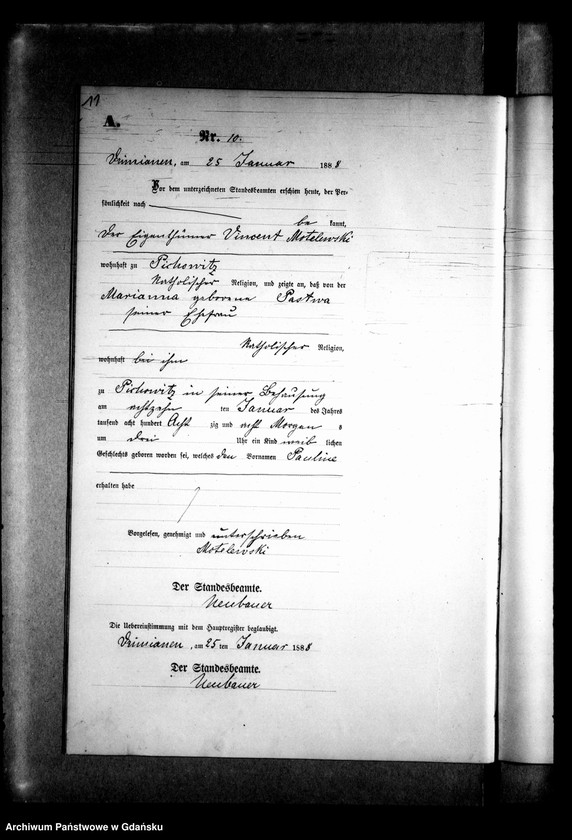 11
A.
Nr. 10.
Dzimianen, am 25 Januar 1888
Vor dem unterzeichneten Standesbeamten erschien heute, der Per-
sönlichkeit nach
be kannt,
der Eigenthümer Vincent Motelewski
wohnhaft zu Pichowitz
Katholischer Religion, und zeigte an, daß von der
Marianna geborene Pastwa
seiner Ehefrau
Katholischer Religion,
wohnhaft bei ihm
zu Pichowitz in seiner Behausung
am achtzehn ten Januar des Jahres
tausend acht hundert Acht zig und acht Morgen s
um drei Uhr ein Kind weib lichen
Geschlechts geboren worden sei, welches den Vornamen Pauline
erhalten habe
Vorgelesen, genehmigt und unterschrieben
Motelewski
Der Standesbeamte.
Neubauer
Die Uebereinstimmung mit dem Hauptregister beglaubigt.
Dzimianen, am 25 ten Januar 1888
Der Standesbeamte.
Neubauer
Archiwum Państwowe w Gdańsku